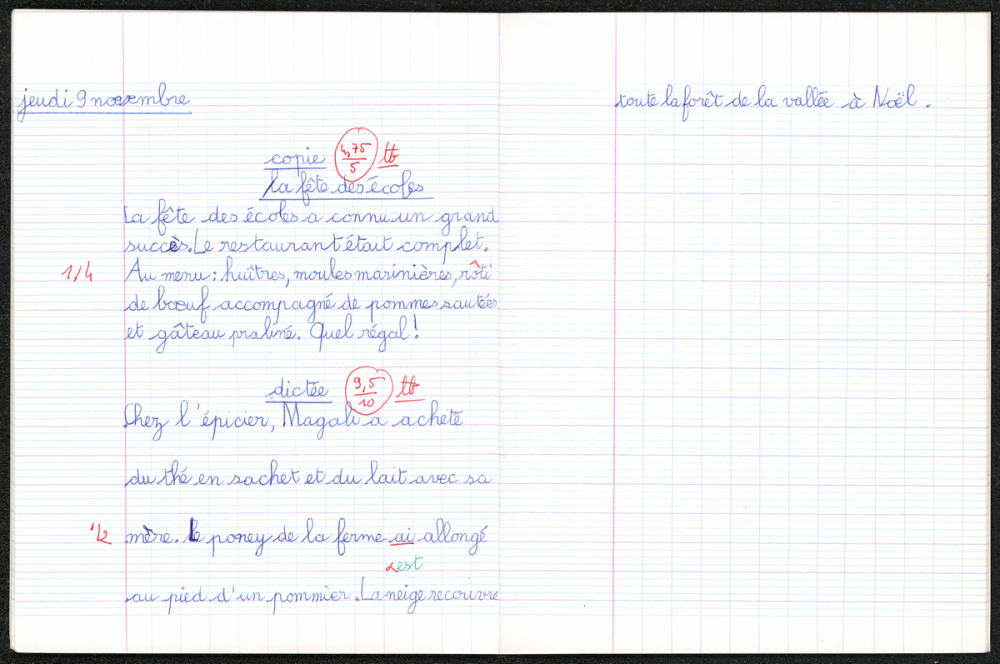 jeudi 9 novembre
copie 4,75/5 tb
la fête des écoles
La fête des écoles a connu un grand
succès. Le restaurant était complet.
1/4 Au menu : huîtres, moules marinières, rôti
de bœuf accompagné de pommes sautées
et gâteau praliné. Quel régal !
dictée 9,5/10 tb
Chez l'épicier, Magali a acheté
du thé en sachet et du lait avec sa
1/2 mère. Le poney de la ferme ai allongé
est
au pied d'un pommier. La neige recouvre
toute la forêt de la vallée à Noël.